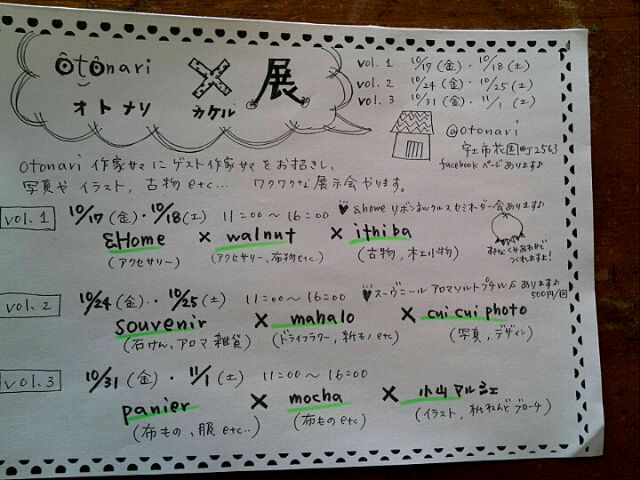 otonari × 展
オトナリ カケル
vol. 1 10/17(金)・10/18(土)
vol. 2 10/24(金)・10/25(土)
vol. 3 10/31(金)・11/1(土)
@otonari
宇土市花園町2563
facebookページあります♪
otonari 作家サマにゲスト作家サマをお招きし、
写真やイラスト、古物etc... ワクワクな展示会やります。
vol. 1 10/17(金)・10/18(土) 11:00〜16:00 ♥&home リボンネックレスセミオーダー会あります♪
&Home × walnut × ithiba
(アクセサリー) (アクセサリー、布物etc..) (古物、木工小物)
つくれますよ!
vol. 2 10/24(金)・10/25(土) 11:00〜16:00 ♥スーヴニール アロマソルトプチW.S あります♪
500円/回
souvenir × mahalo × cui cui photo
(石けん、アロマ雑貨) (ドライフラワー、紙モノetc) (写真、デザイン)
vol. 3 10/31(金)・11/1(土) 11:00〜16:00
panier × mocha × 小山マルシェ
(布もの、服etc..) (布ものetc) (イラスト、紙ねんどブローチ)